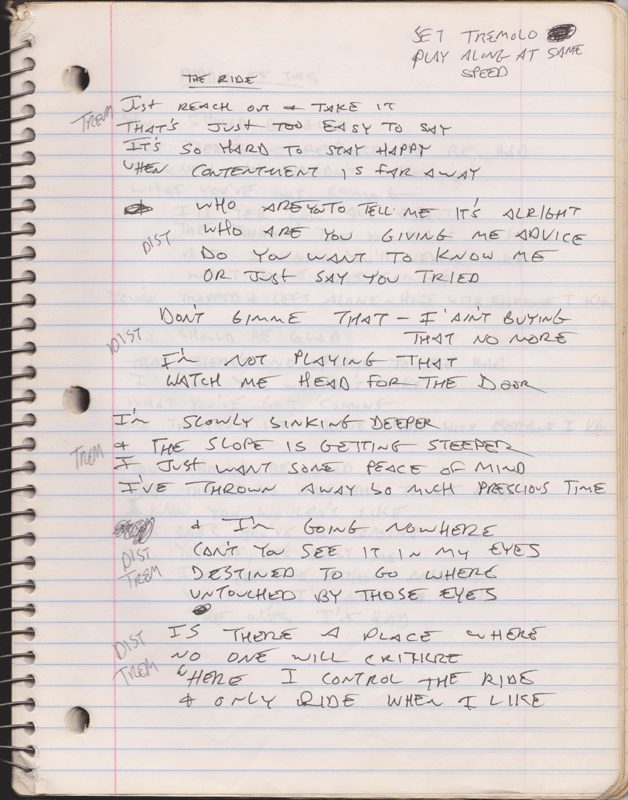 SET TREMOLO
PLAY ALONG AT SAME
SPEED
THE RIDE
TREM JUST REACH OUT & TAKE IT
THAT'S JUST TOO EASY TO SAY
IT'S SO HARD TO STAY HAPPY
WHEN CONTENTMENT IS FAR AWAY
WHO ARE YOU TO TELL ME IT'S ALRIGHT
DIST WHO ARE YOU GIVING ME ADVICE
DO YOU WANT TO KNOW ME
OR JUST SAY YOU TRIED
DONT GIMME THAT - I AIN'T BUYING
DIST THAT NO MORE
I'M NOT PLAYING THAT
WATCH ME HEAD FOR THE DOOR
I'M SLOWLY SINKING DEEPER
TREM & THE SLOPE IS GETTING STEEPER
I JUST WANT SOME PEACE OF MIND
I'VE THROWN AWAY SO MUCH PRESCIOUS TIME
& I'M GOING NOWHERE
DIST CAN'T YOU SEE IT IN MY EYES
TREM DESTINED TO GO WHERE
UNTOUCHED BY THOSE EYES
DIST IS THERE A PLACE WHERE
NO ONE WILL
TREM WHERE I CONTROL THE RIDE
& ONLY RIDE WHEN I LIKE